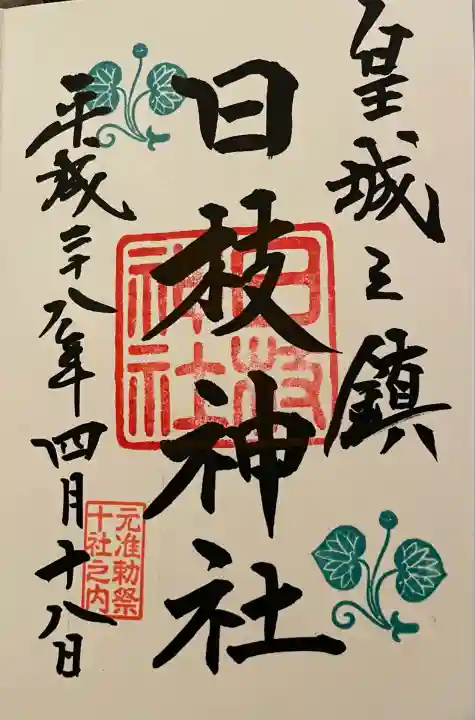 皇城之鎮
日枝神社
日枝神社
平成二十八年四月十八日
元准勅祭
十社之内